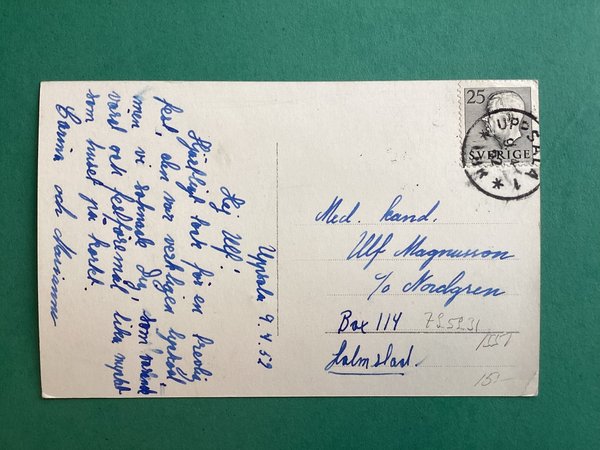 Uppsala 9.4.52
Hej Ulf!
Hjärtligt tack för en trevlig
fest, den var verkligen lyckad
men vi saknade Dig, som
värd och festföremål, lika mycket
som huset på kortet.
Carin och
25
SVERIGE
UPPSALA 1
Med. kand.
Ulf Magnusson
c/o Nordgren
Box 114
Halmstad.
725231
1551
15:-